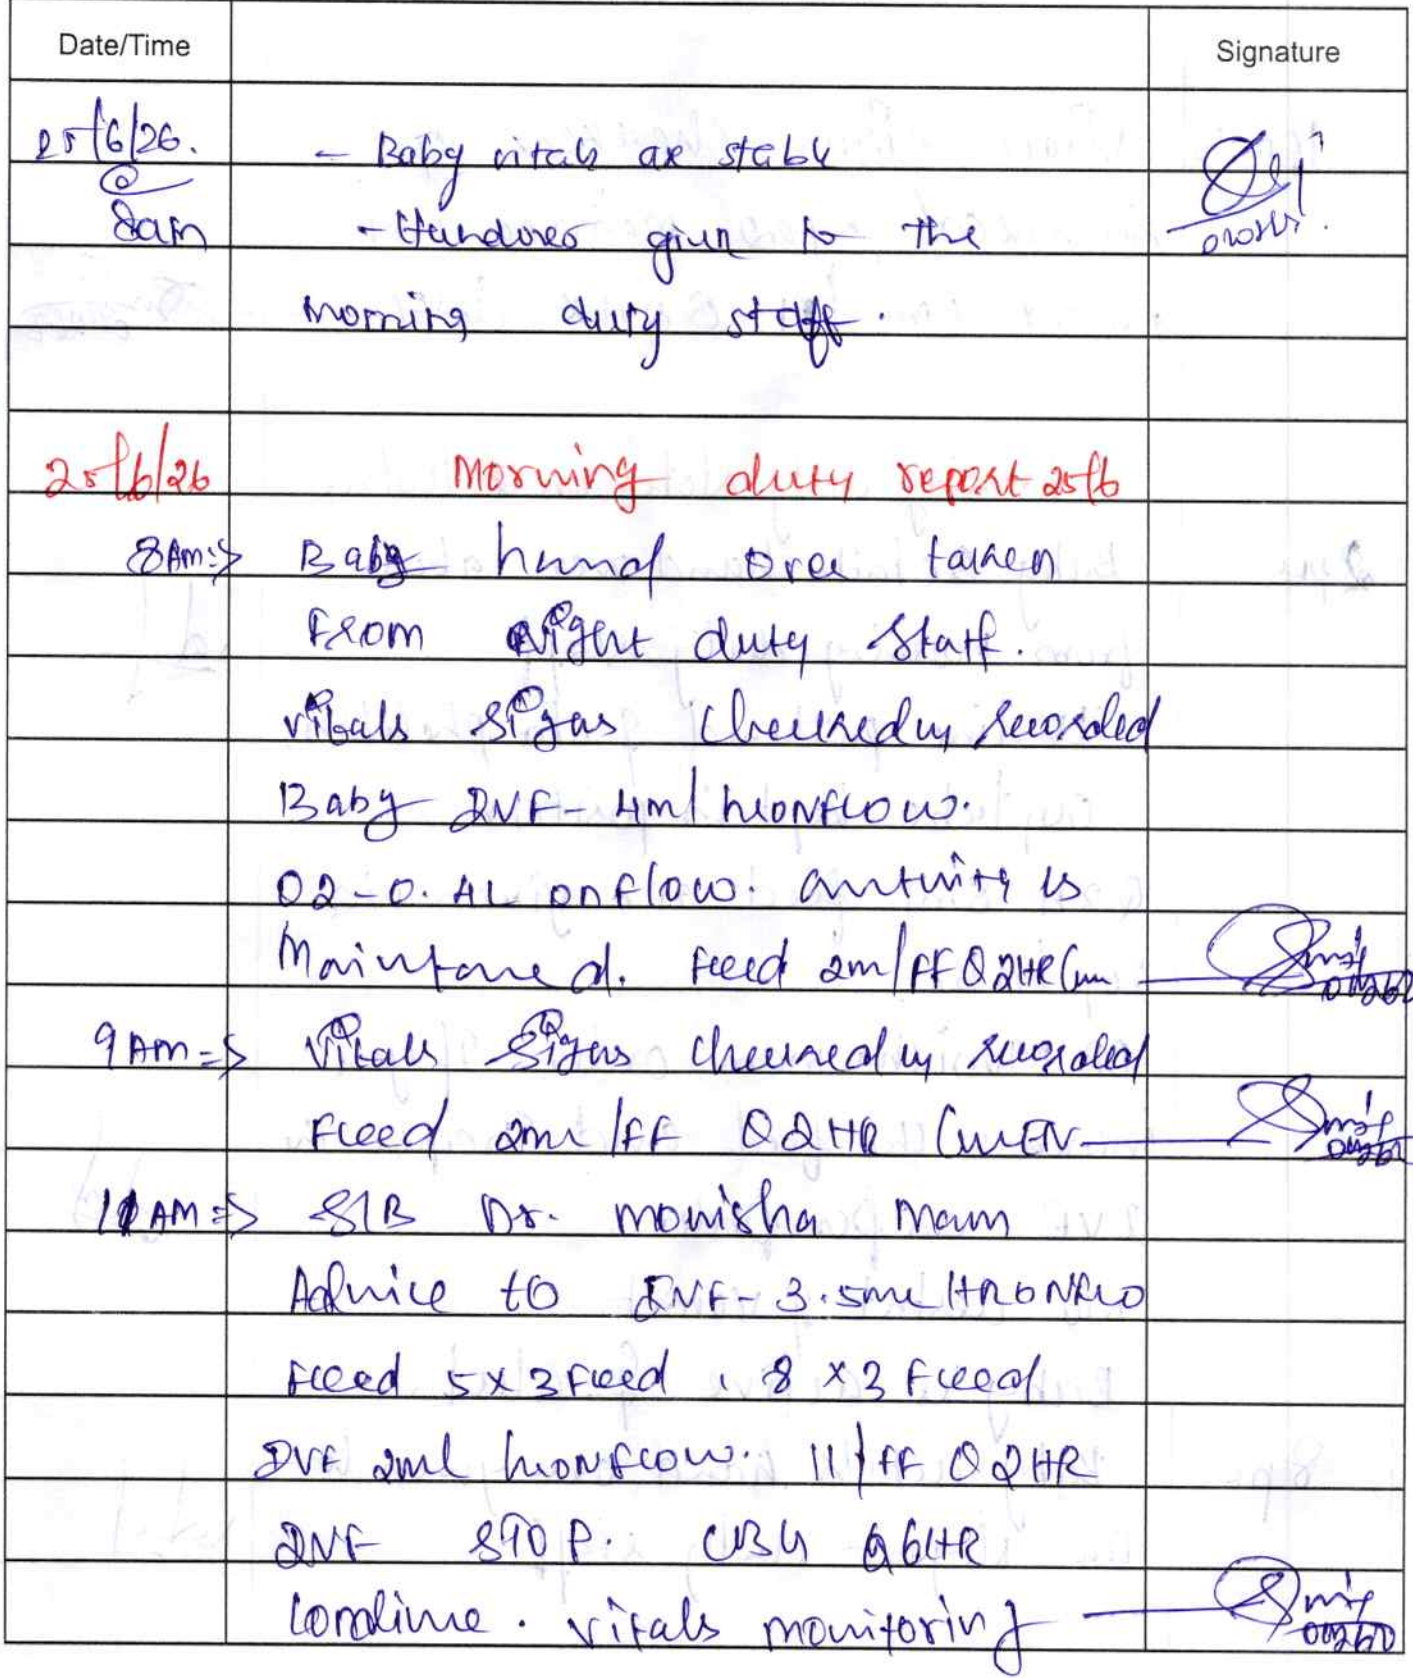 Date/Time Signature
25/6/26. - Baby vitals are stable
@
8am - Handover given to the
morning duty staff.
25/6/26 Morning duty report 25/6
8AM:=> Baby hand over taken
From night duty Staff.
vitals signs checked recorded
Baby IVF - 4ml/hr onflow.
O2 - 0. 4L onflow. activity is
Maintaned. Feed 2ml/FF Q2HR
9AM => Vitals signs checked recorded
Feed 2ml/FF Q2HR Given
11AM => S/B Dr. Monisha Mam
Advice to IVF - 3.5ml/HR onflo
Feed 5x3 feed, 8x3 Feed
IVF 2ml hronflow. 11/FF Q2HR
IVF STOP. CBG Q6HR
vitals monitoring